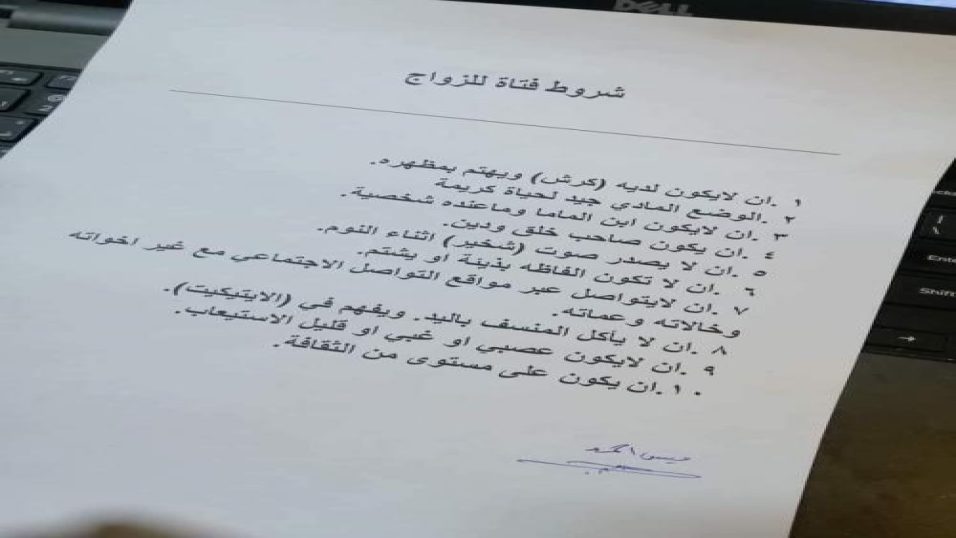 DELL
شروط فتاة للزواج
١ .ان لايكون لديه (كرش) ويهتم بمظهره.
٢ .الوضع المادي جيد لحياة كريمة
٣ .ان لايكون ابن الماما وماعنده شخصية.
٤ .ان يكون صاحب خلق ودين.
٥ .ان لا يصدر صوت (شخير) اثناء النوم.
٦ .ان لا تكون الفاظه بذيئة او يشتم.
٧ .ان لايتواصل عبر مواقع التواصل الاجتماعي مع غير اخواته
وخالاته وعماته.
٨ .ان لا يأكل المنسف باليد. ويفهم في (الايتيكيت).
٩ .ان لايكون عصبي او غبي او قليل الاستيعاب.
١٠ .ان يكون على مستوى من الثقافة.
Enter
Shift